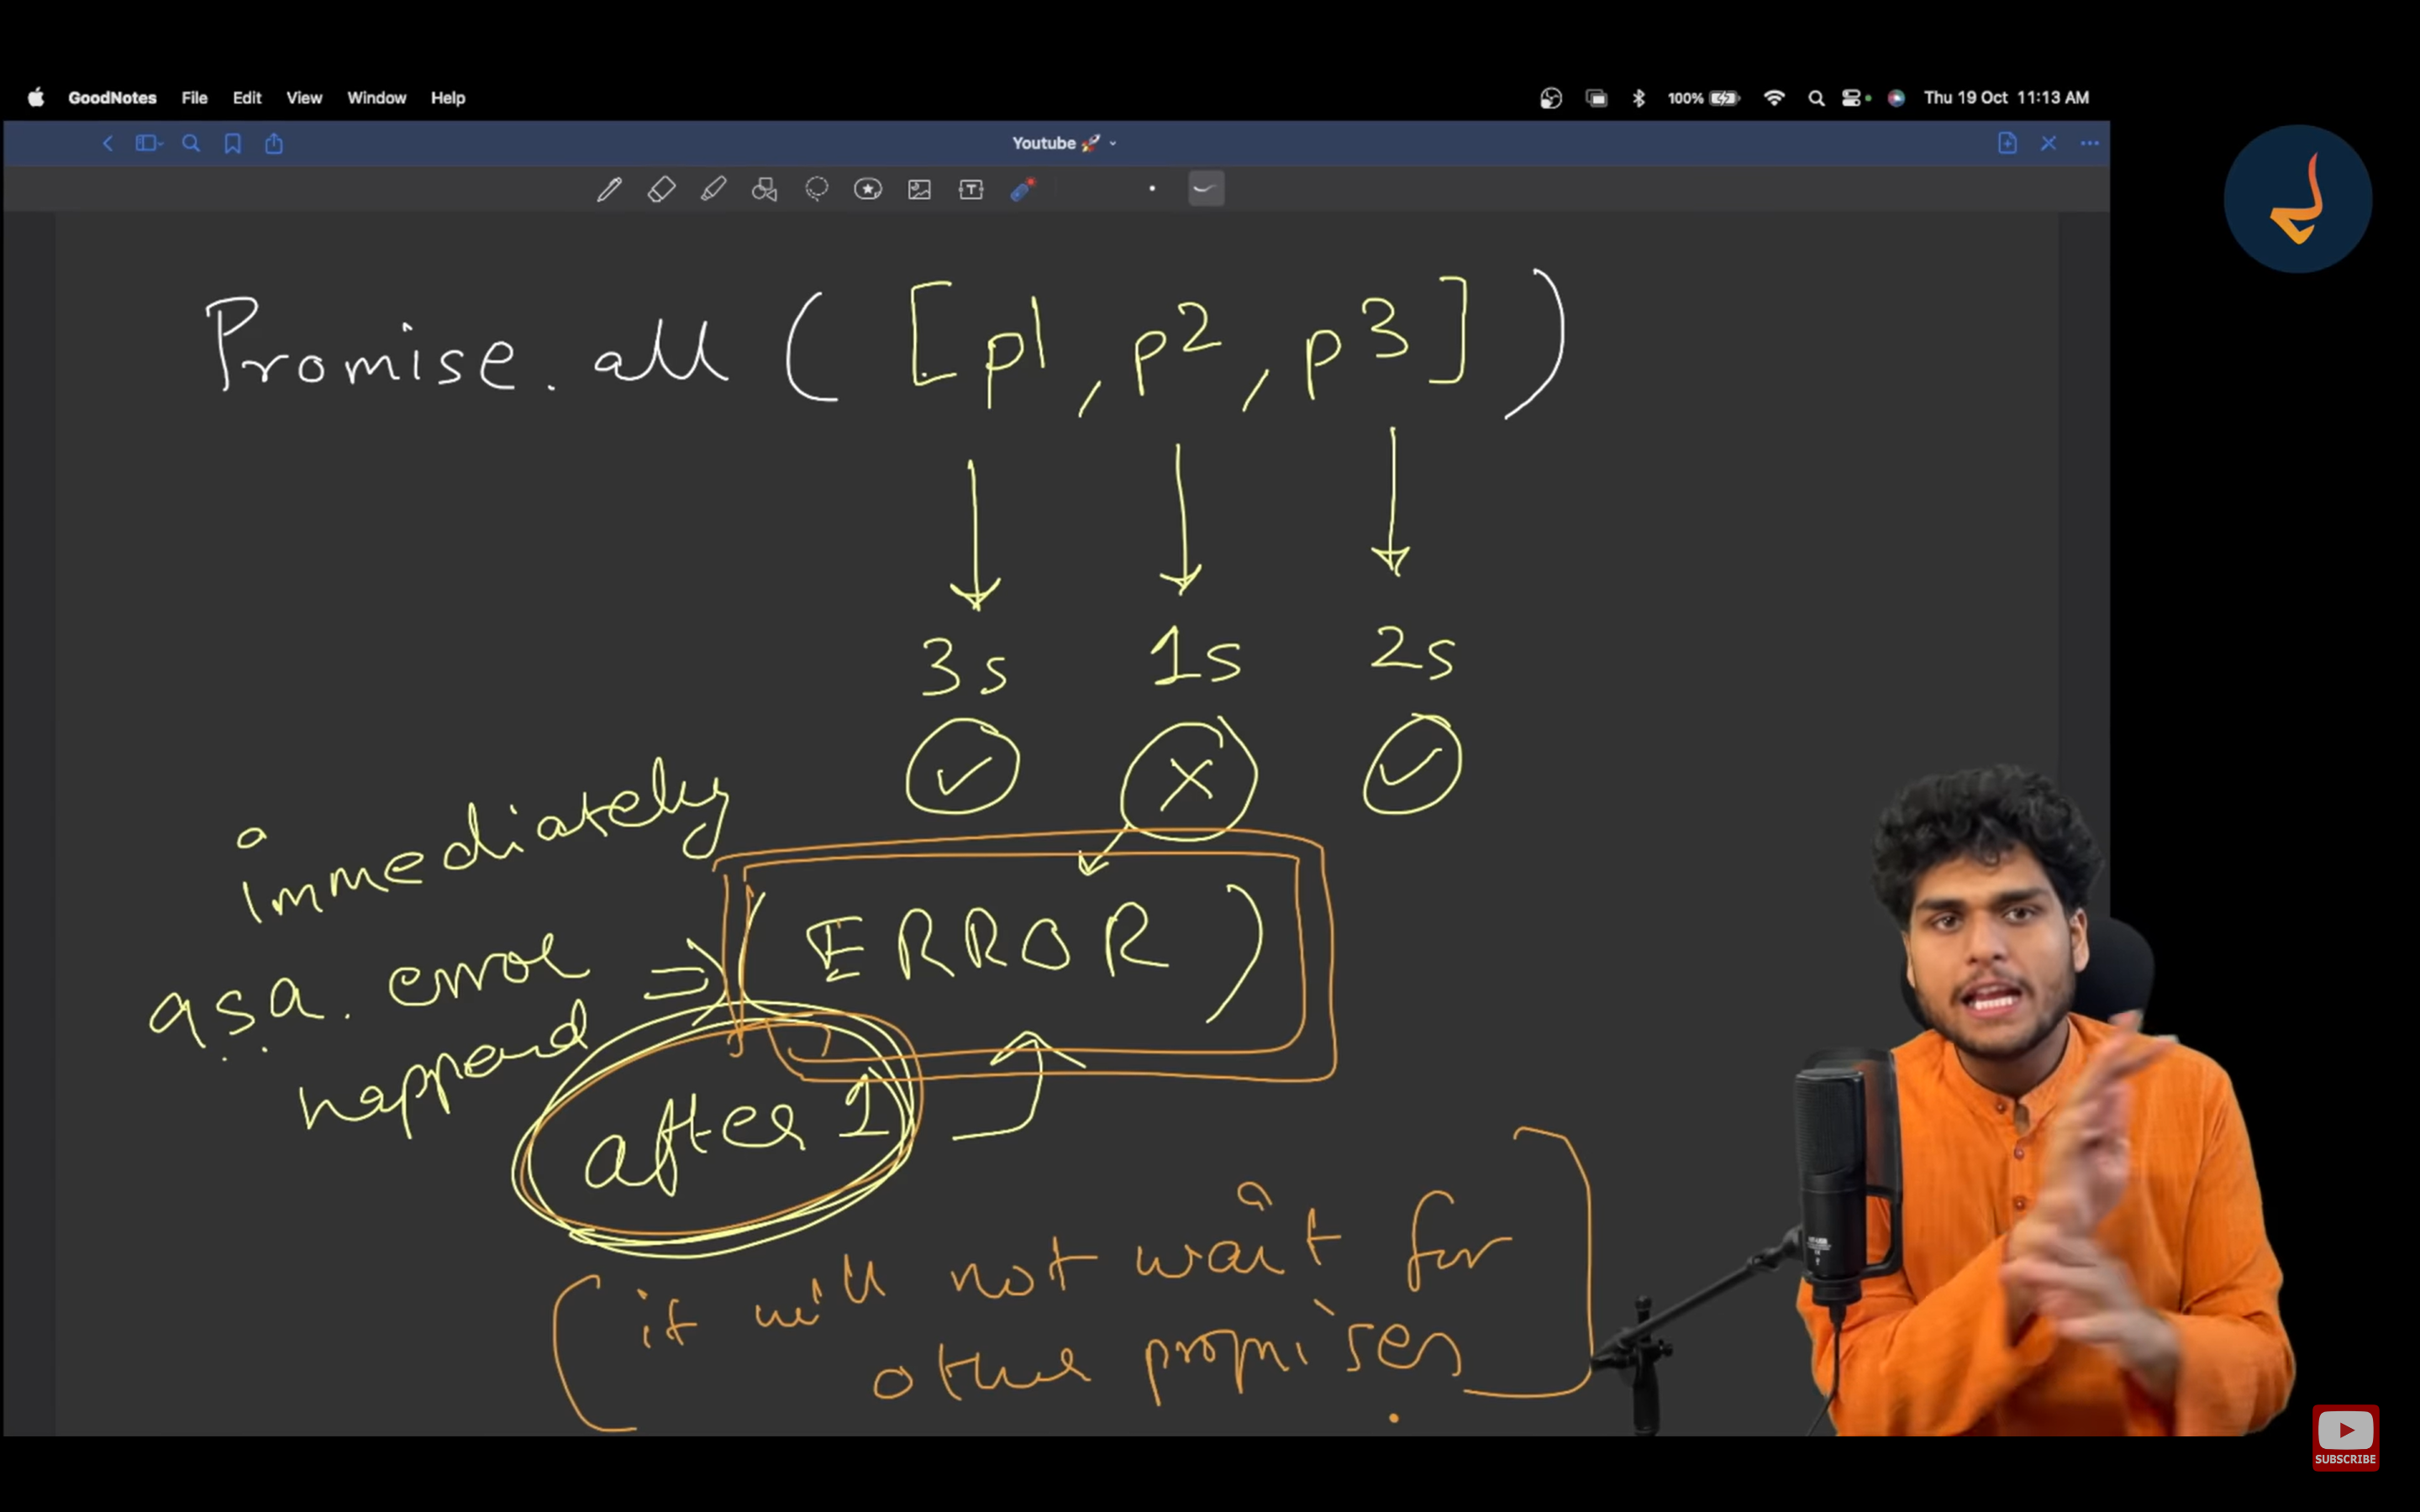 GoodNotes File Edit View Window Help 100% Thu 19 Oct 11:13 AM
Youtube 🚀
T
Promise.all ( [p1, p2, p3] )
3s 1s 2s
immediately
asa. error
happend
⇒ ( ERROR )
after 1
( it will not wait for
other promises ]
SUBSCRIBE